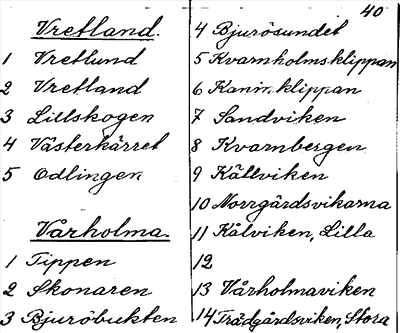 Vretland.
1 Vretlund
2 Vretland
3 Lillskogen
4 Västerkärret
5 Odlingen
Vårholma.
1 Tippen
2 Skonaren
3 Bjuröbukten
40
4 Bjurösundet
5 Kvarnholmsklippan
6 Kanin.klippan
7 Sandviken
8 Kvarnbergen
9 Källviken
10 Norrgårdsvikarna
11 Kålviken, Lilla
12
13 Vårholmaviken
14 Trädgårdsviken, Stora